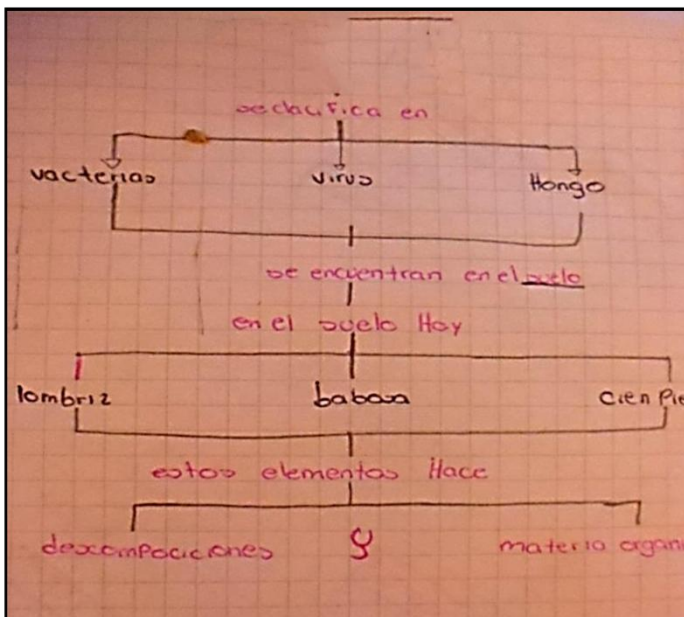 se clacifica en
vacterias virus Hongo
se encuentran en el suelo
en el suelo Hay
lombriz babosa cien Pie
estos elementos Hace
descompociciones y materia organi